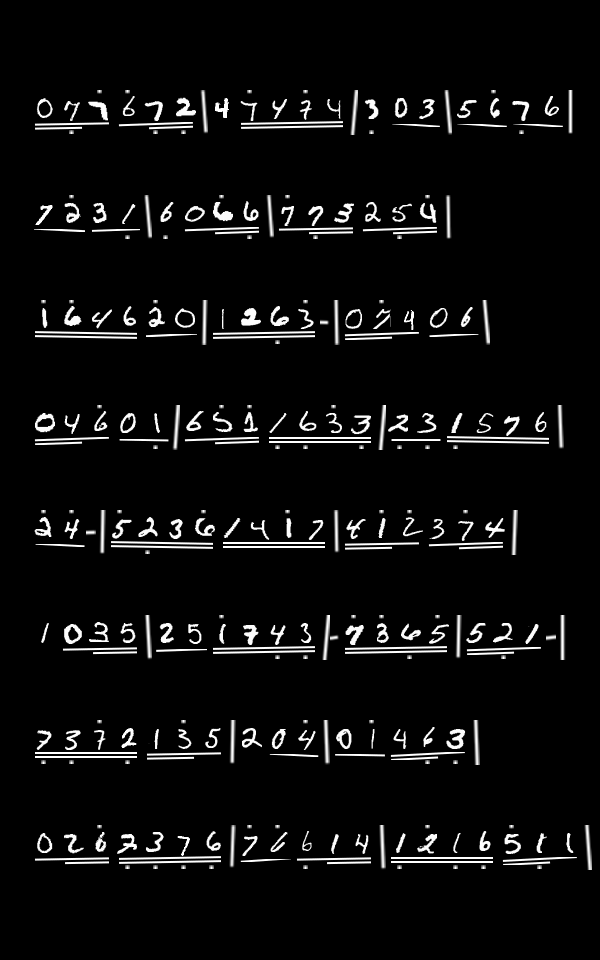 077672|47474|303|5676|
7231|6066|773254|
164620|1263-|07406|
04601|651|1633|231576|
24-|52361417|812374|
1035|251743|-7365|521-|
7372135|204|01463|
0262376|76614|1216511|